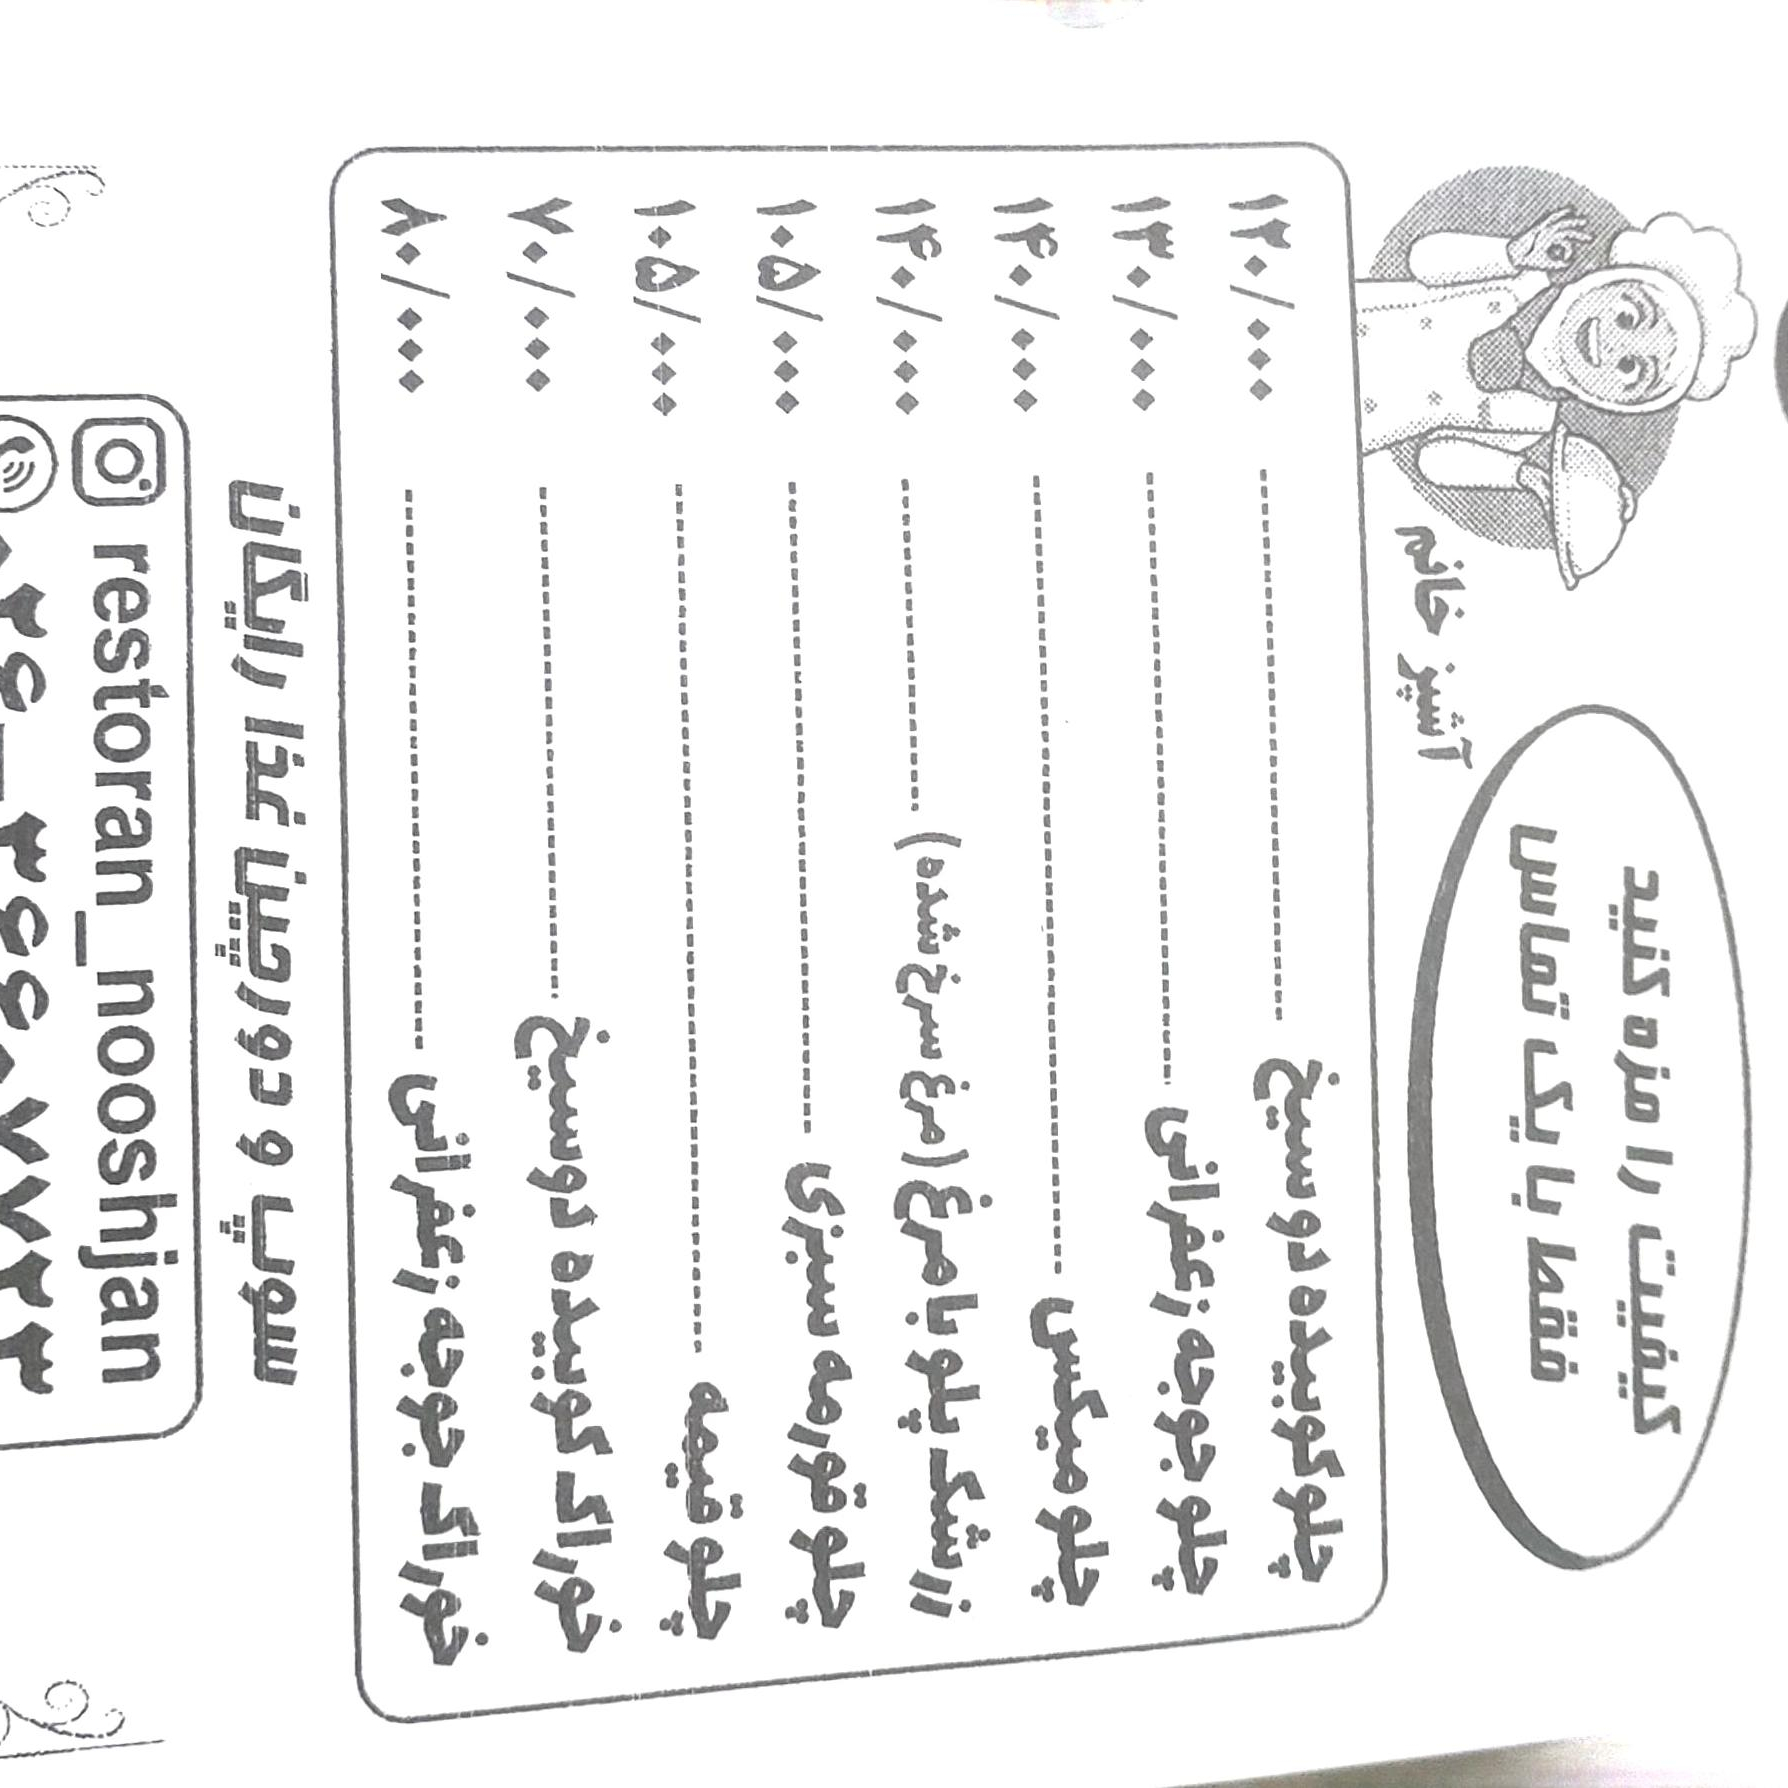 کیفیت را مزه کنید
فقط با یک تماس
آشپز خانم
چلو کوبیده دو سیخ ۱۲۰/۰۰۰
چلو جوجه زعفرانی ۱۳۰/۰۰۰
چلو میکس ۱۴۰/۰۰۰
زرشک پلو با مرغ (مرغ سرخ شده) ۱۴۰/۰۰۰
چلو قورمه سبزی ۱۰۵/۰۰۰
چلو قیمه ۱۰۵/۰۰۰
خوراک کوبیده دو سیخ ۷۰/۰۰۰
خوراک جوجه زعفرانی ۸۰/۰۰۰
سوپ و دورچین غذا رایگان
restoran_nooshjan